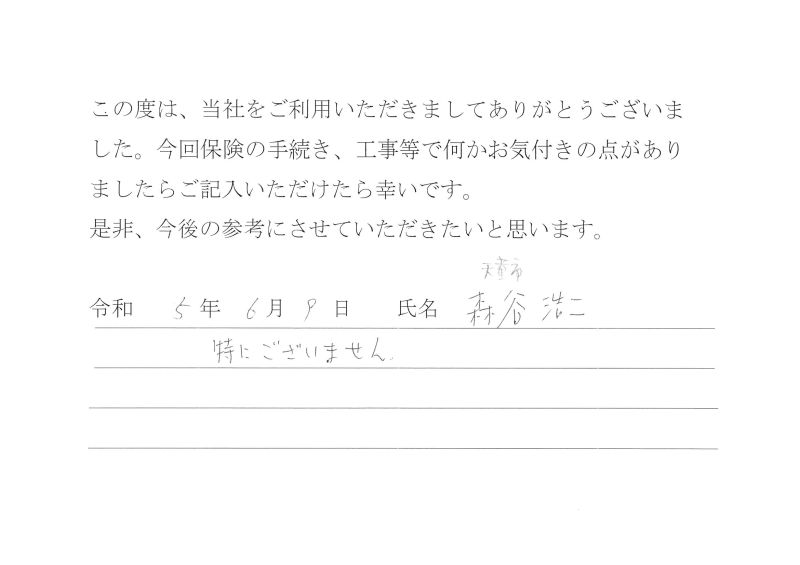 この度は、当社をご利用いただきましてありがとうございま
した。今回保険の手続き、工事等で何かお気付きの点があり
ましたらご記入いただけたら幸いです。
是非、今後の参考にさせていただきたいと思います。
令和 5年 6月 9日 氏名 森谷 浩二
特にございません。